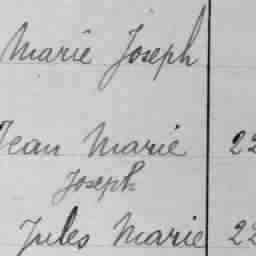 Marie Joseph
Jean Marie 22
Joseph
Jules Marie 22